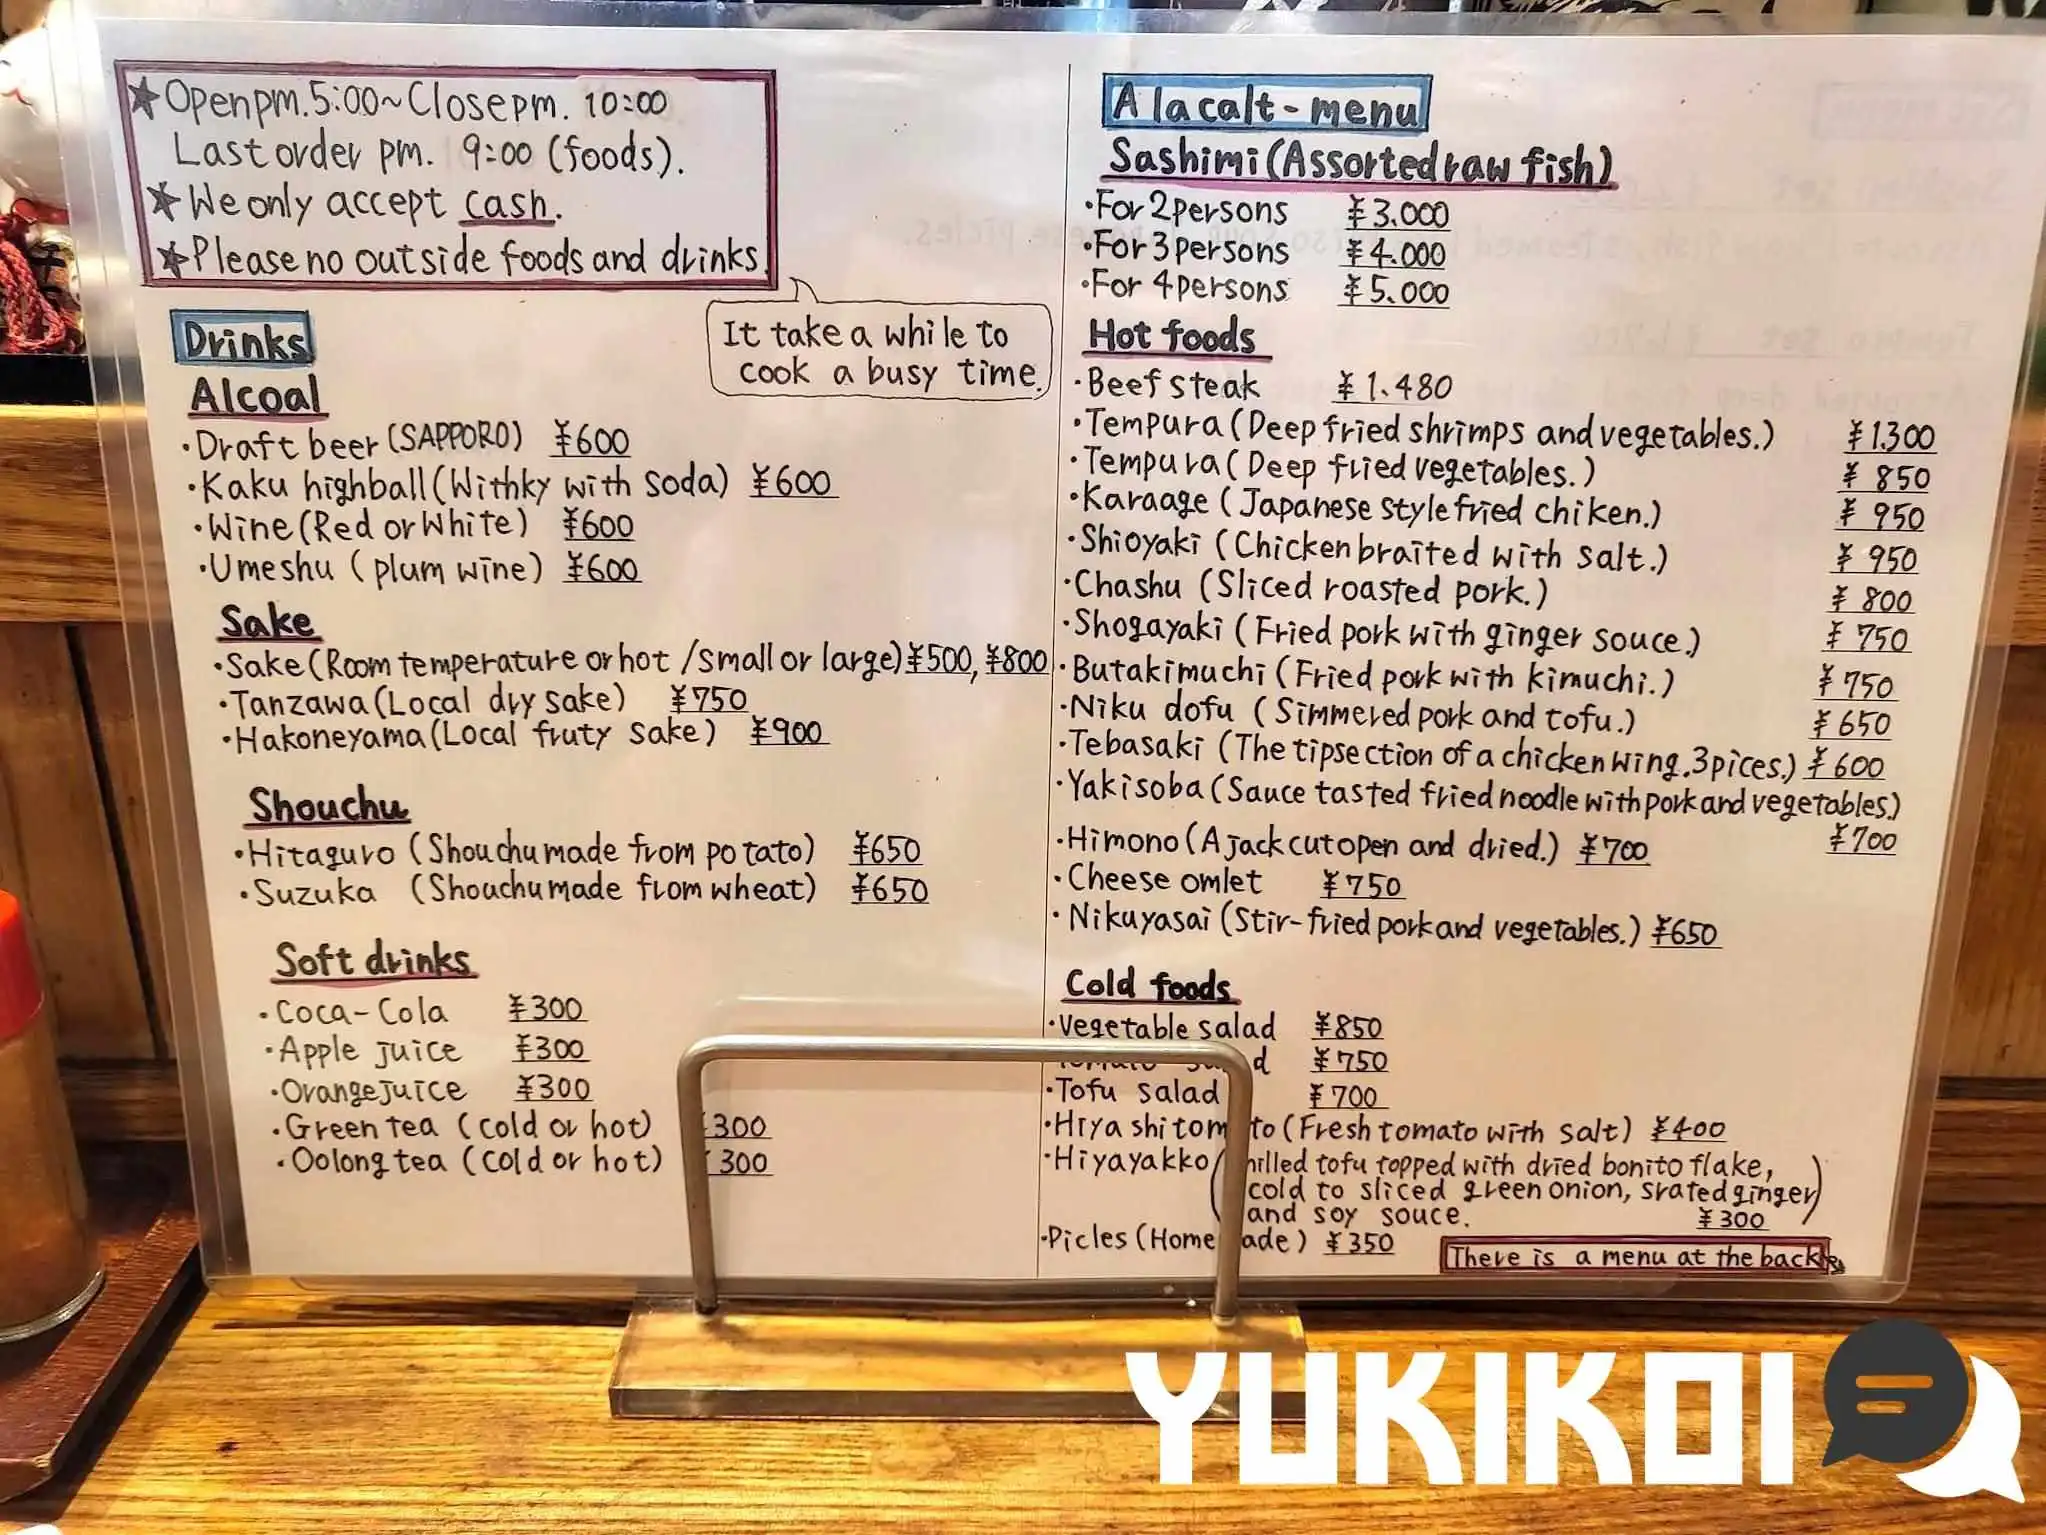 ★Open pm.5:00~Close pm. 10:00
Last order pm. 9:00 (foods).
★We only accept cash.
★Please no outside foods and drinks
It take a while to
cook a busy time.
Drinks
Alcoal
・Draft beer (SAPPORO) ¥600
・Kaku highball (Withky with soda) ¥600
・Wine (Red or White) ¥600
・Umeshu (plum wine) ¥600
Sake
・Sake (Room temperature or hot /small or large) ¥500, ¥800
・Tanzawa (Local dry sake) ¥750
・Hakoneyama (Local fruty sake) ¥900
Shouchu
・Hitaguro (Shouchu made from potato) ¥650
・Suzuka (Shouchu made from wheat) ¥650
Soft drinks
・Coca-Cola ¥300
・Apple juice ¥300
・Orange juice ¥300
・Green tea (cold or hot) ¥300
・Oolong tea (cold or hot) ¥300
A la calt-menu
Sashimi (Assorted raw fish)
・For 2 persons ¥3.000
・For 3 persons ¥4.000
・For 4 persons ¥5.000
Hot foods
・Beef steak ¥1.480
・Tempura (Deep fried shrimps and vegetables.) ¥1300
・Tempura (Deep fried vegetables.) ¥850
・Karaage (Japanese style fried chiken.) ¥950
・Shioyaki (Chicken braited with salt.) ¥950
・Chashu (Sliced roasted pork.) ¥800
・Shogayaki (Fried pork with ginger souce.) ¥750
・Butakimuchi (Fried pork with kimuchi.) ¥750
・Niku dofu (Simmered pork and tofu.) ¥650
・Tebasaki (The tip section of a chicken wing.3pices.) ¥600
・Yakisoba (Sauce tasted fried noodle with pork and vegetables.)
¥700
・Himono (A jack cut open and dried.) ¥700
・Cheese omlet ¥750
・Nikuyasai (Stir-fried pork and vegetables.) ¥650
Cold foods
・Vegetable salad ¥850
¥750
・Tofu salad ¥700
・Hiyashi tomato (Fresh tomato with salt) ¥400
・Hiyayakko (hilled tofu topped with dried bonito flake,
cold to sliced green onion, srated ginger
and soy souce. ¥300)
・Picles (Home ade) ¥350
There is a menu at the back
YUKIKOI